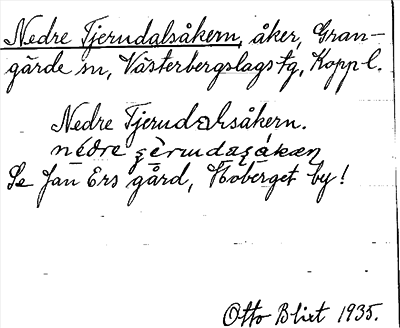 Nedre Tjerndalsåkern, åker, Gran-
gärde sn, Västerbergslags tg, Koppl.
Nedre Tjerndalsåkern.
Se Jan Ers gård, Hoberget by!
Otto Blixt 1935.